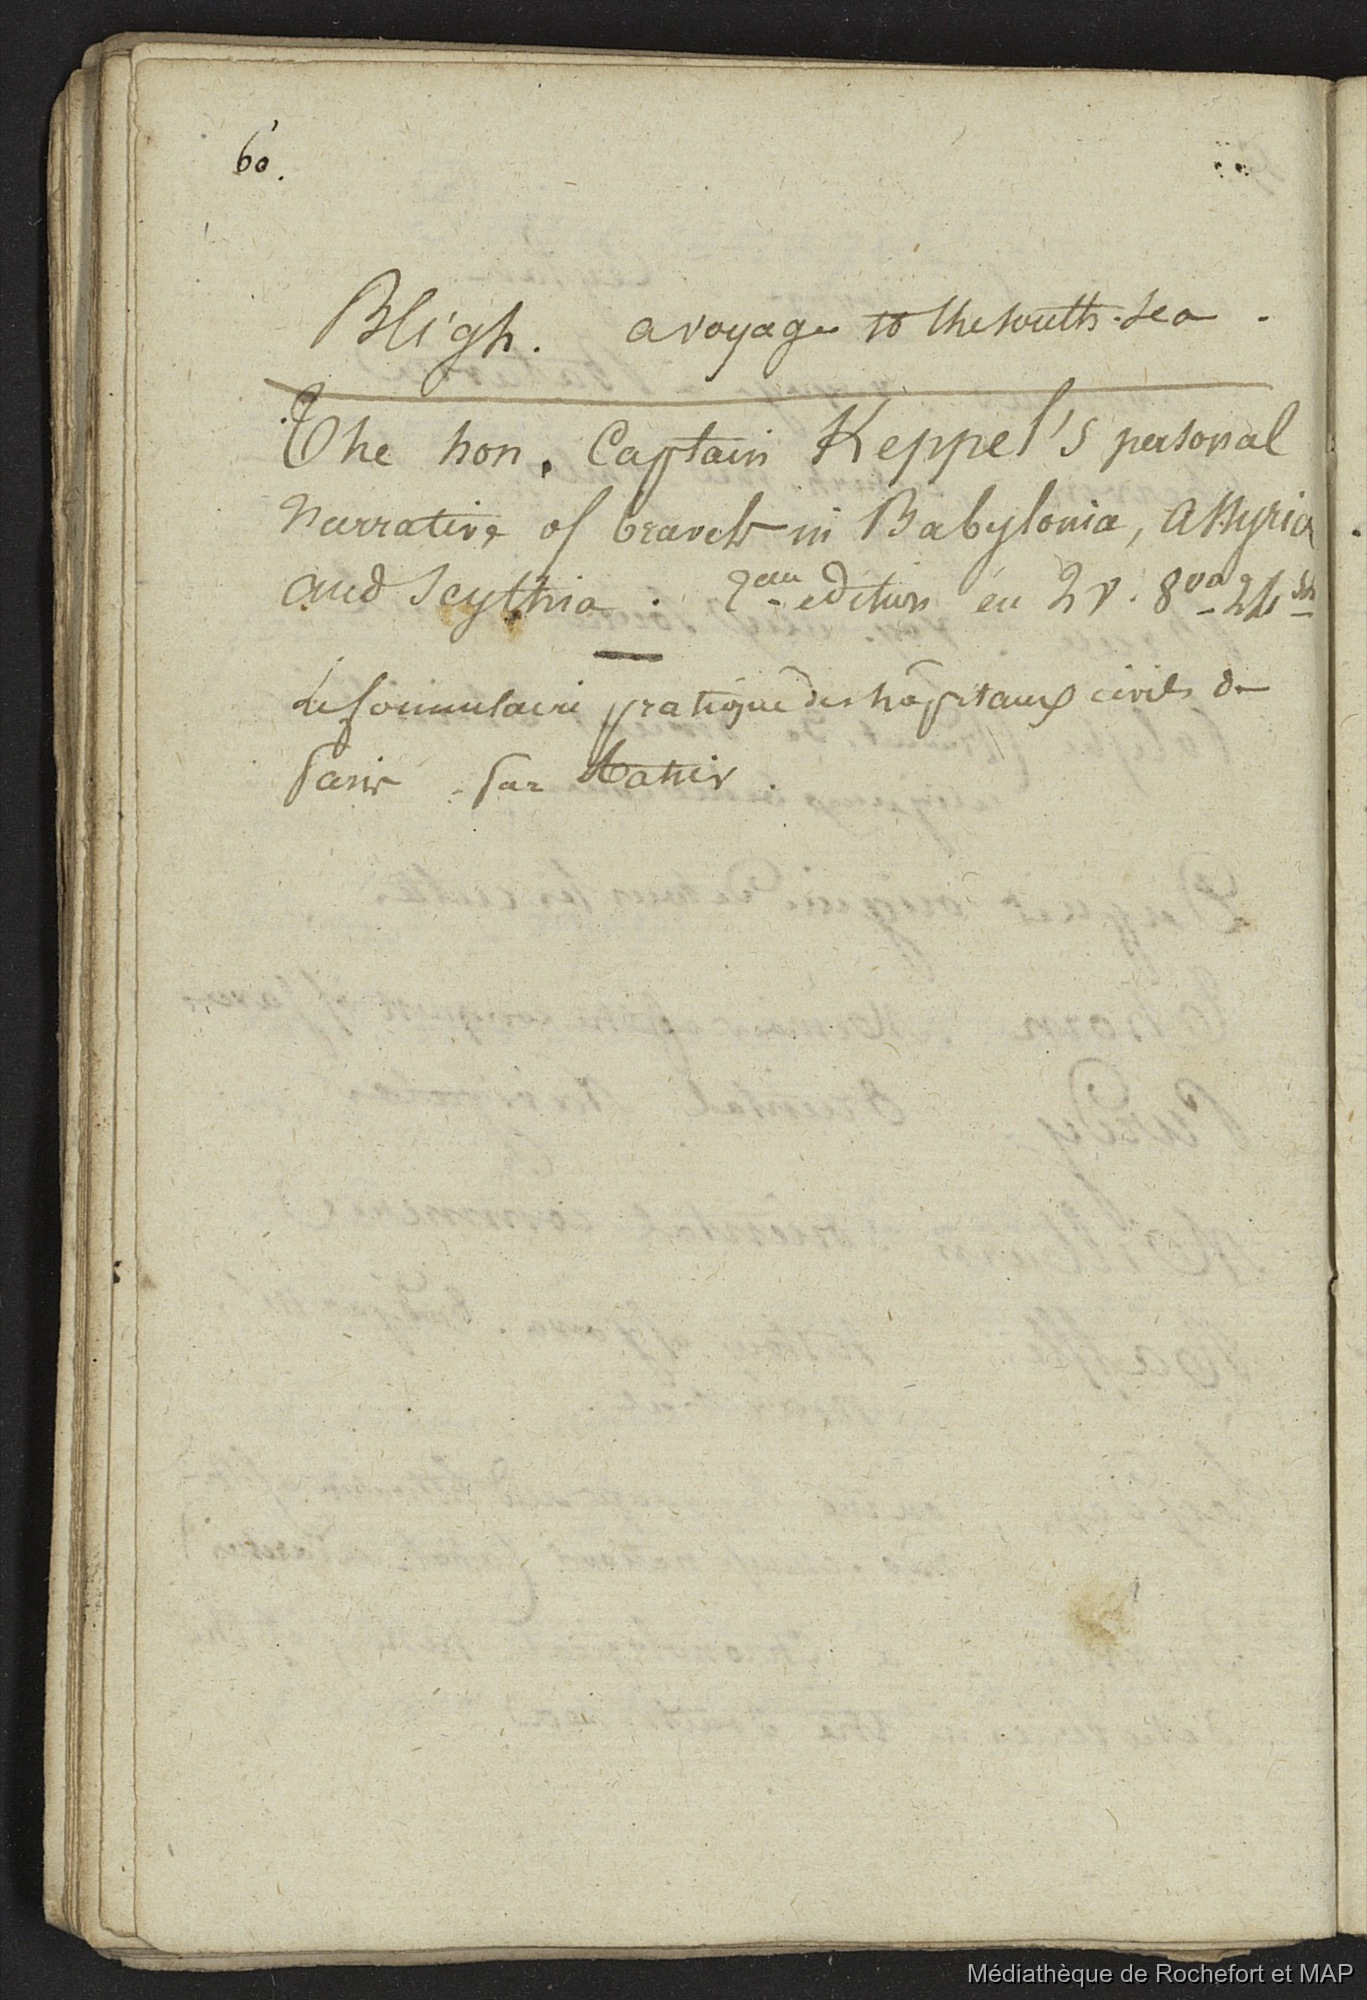 60.
Bligh. a voyage to the south-sea.
The hon. Captain Keppel's personal
Narrative of travels in Babylonia, Assyria
and Scythia. 2eme edition en 2 v. 8vo 24sh
Le formulaire pratique des hôpitaux civils de
Paris par Ratier.
Médiathèque de Rochefort et MAP